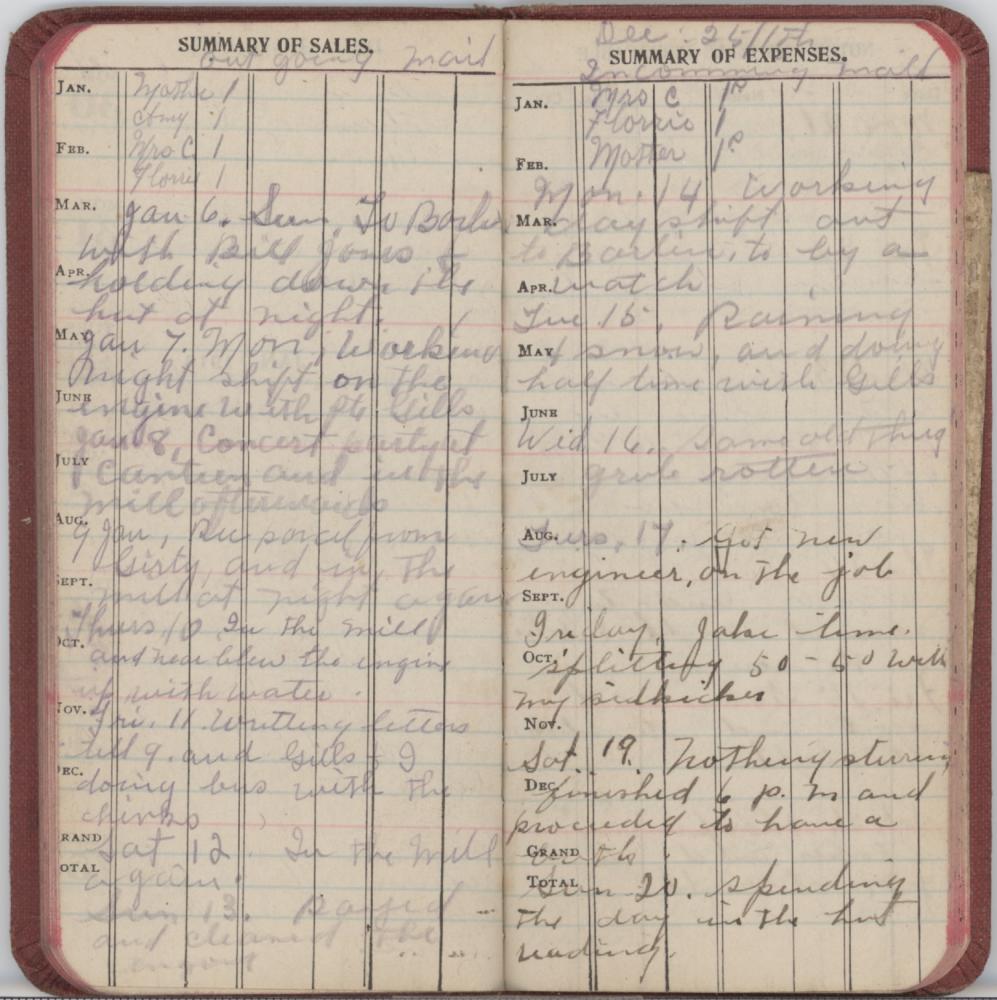 SUMMARY OF SALES.
out going mail
JAN. Mother 1
Amy 1
FEB. Mrs C. 1
Florrie 1
MAR. Jan 6. Sun. To Barlin
with Bill Jones &
APR. holding down the
hut at night.
MAY Jan 7. Mon, Working
night shift on the
JUNE engine with Pte Gills
Jan 8, Concert party at
JULY Canteen and in the
mill afterwards
AUG. 9 Jan, Rec parcel from
Girty, and in the
SEPT. mill at night again
Thurs 10 In the mill
OCT. and near blew the engine
up with water.
NOV. Fri. 11. Writting letters
till 9. and Gills & I
DEC. doing bus with the
chinks
GRAND Sat 12. In the Mill
TOTAL again.
Sun 13.
and cleaned the
engine
Dec. 25/17th
SUMMARY OF EXPENSES.
Incomming mail
JAN. Mrs C 1P
Florrie 1
FEB. Mother 1P
Mon. 14 Working
MAR. day shift out
to Barlin, to by a
APR. watch
Tue 15. Raining
MAY & snow, and doing
half time with Gills
JUNE
Wed 16. same old thing
JULY grub rotten
AUG. Thurs, 17. Got new
engineer, on the job
SEPT.
Friday, Jake time.
OCT. splitting 50-50 with
my sidkicker
NOV.
Sat. 19. Nothing sturring
DEC. finished 6 p.m and
proceeded to have a
GRAND bath.
TOTAL Sun 20. spending
the day in the hut
reading.